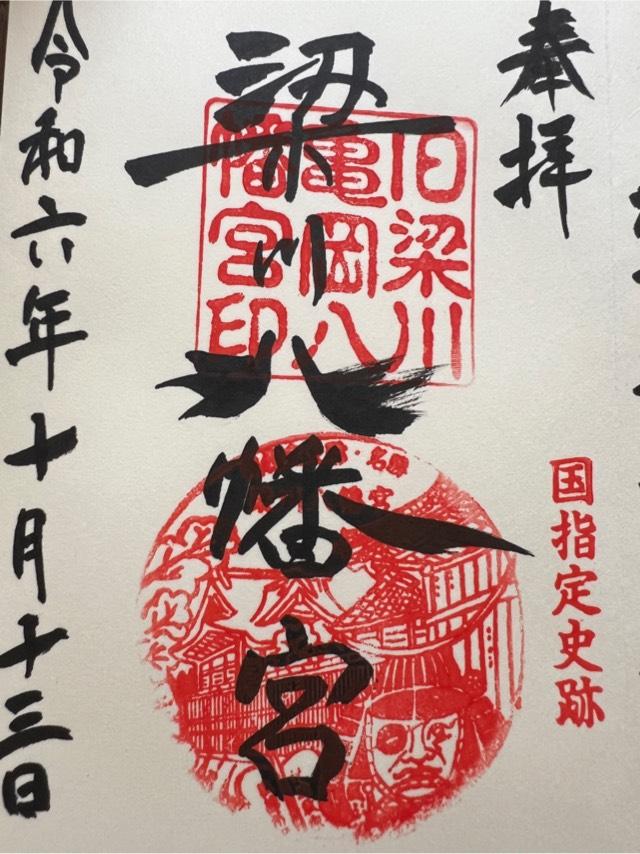 奉拝
国指定史跡
梁川八幡宮
旧梁川
亀岡八
幡宮印
令和六年十月十三日